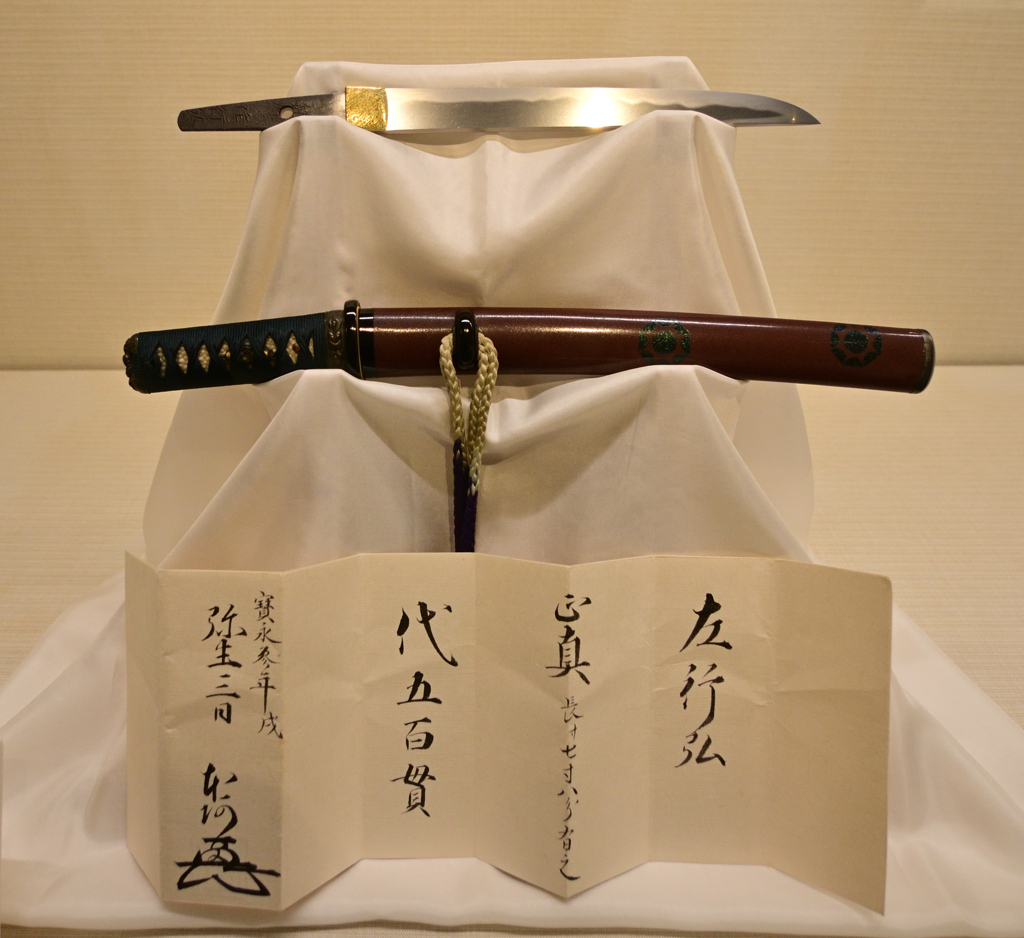 左行弘
正真
長サ七寸八分有之
代五百貫
寶永参年戌
弥生三日
本阿